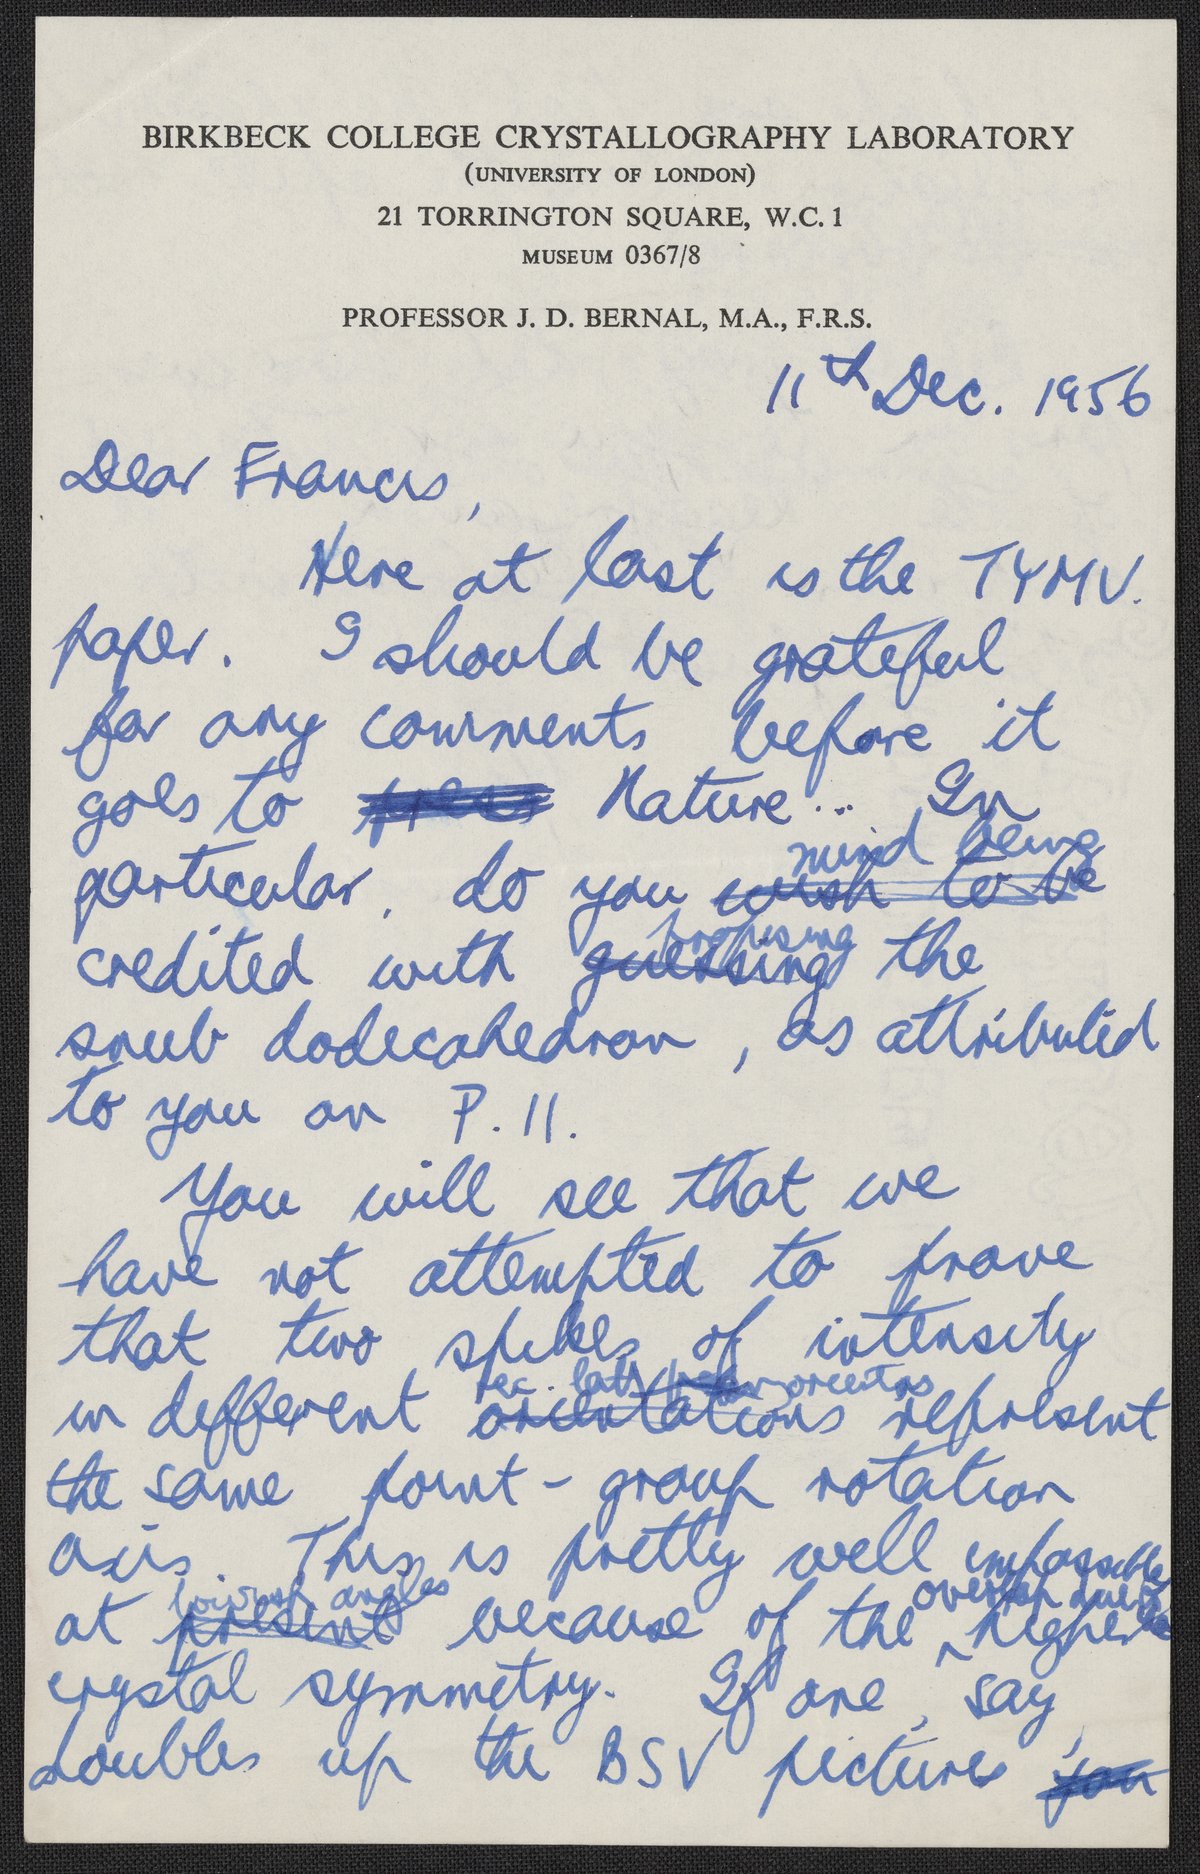 BIRKBECK COLLEGE CRYSTALLOGRAPHY LABORATORY
(UNIVERSITY OF LONDON)
21 TORRINGTON SQUARE, W.C. 1
MUSEUM 0367/8
PROFESSOR J. D. BERNAL, M.A., F.R.S.
11th Dec. 1956
Dear Francis,
Here at last is the TYMV
paper. I should be grateful
for any comments before it
goes to press Nature... In
mind being
particular, do you wish to be
proposing
credited with guessing the
snub dodecahedron, as attributed
to you on P. 11.
You will see that we
have not attempted to prove
that two spikes of intensity
rec. latt.
in different orientations represent
the same point-group rotation
axis. This is pretty well impossible
low angles overlap due to
at present because of the higher
crystal symmetry. If one, say,
doubles up the BSV pictures you